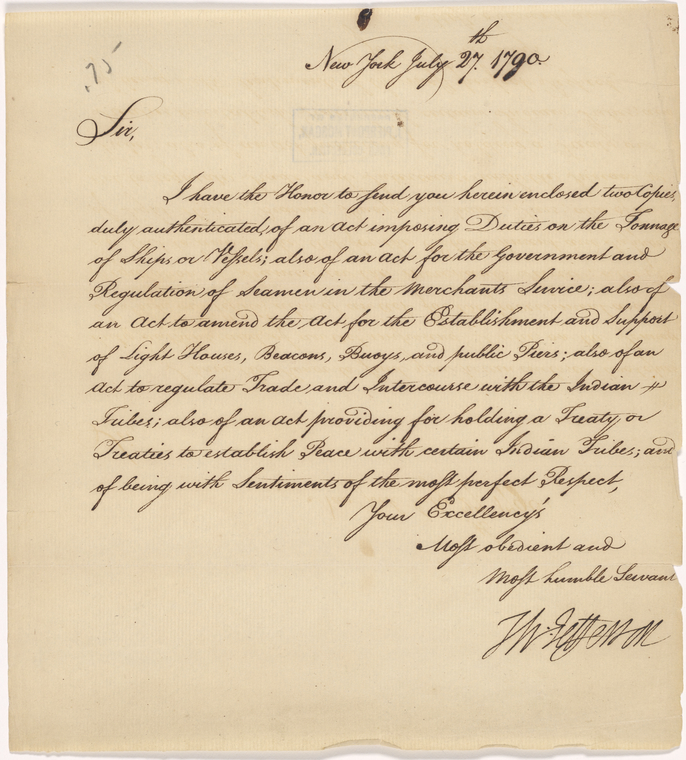 .75
New York July 27.th 1790.
Sir,
I have the Honor to send you herein enclosed two Copies,
duly authenticated, of an Act imposing Duties on the Tonnage
of Ships or Vessels; also of an Act for the Government and
Regulation of Seamen in the Merchants Service; also of
an Act to amend the Act for the Establishment and Support
of Light Houses, Beacons, Buoys, and public Piers; also of an
Act to regulate Trade and Intercourse with the Indian
Tribes; also of an Act providing for holding a Treaty or
Treaties to establish Peace with certain Indian Tribes; and
of being with Sentiments of the most perfect Respect,
Your Excellency's
Most obedient and
Most humble Servant
Th: Jefferson